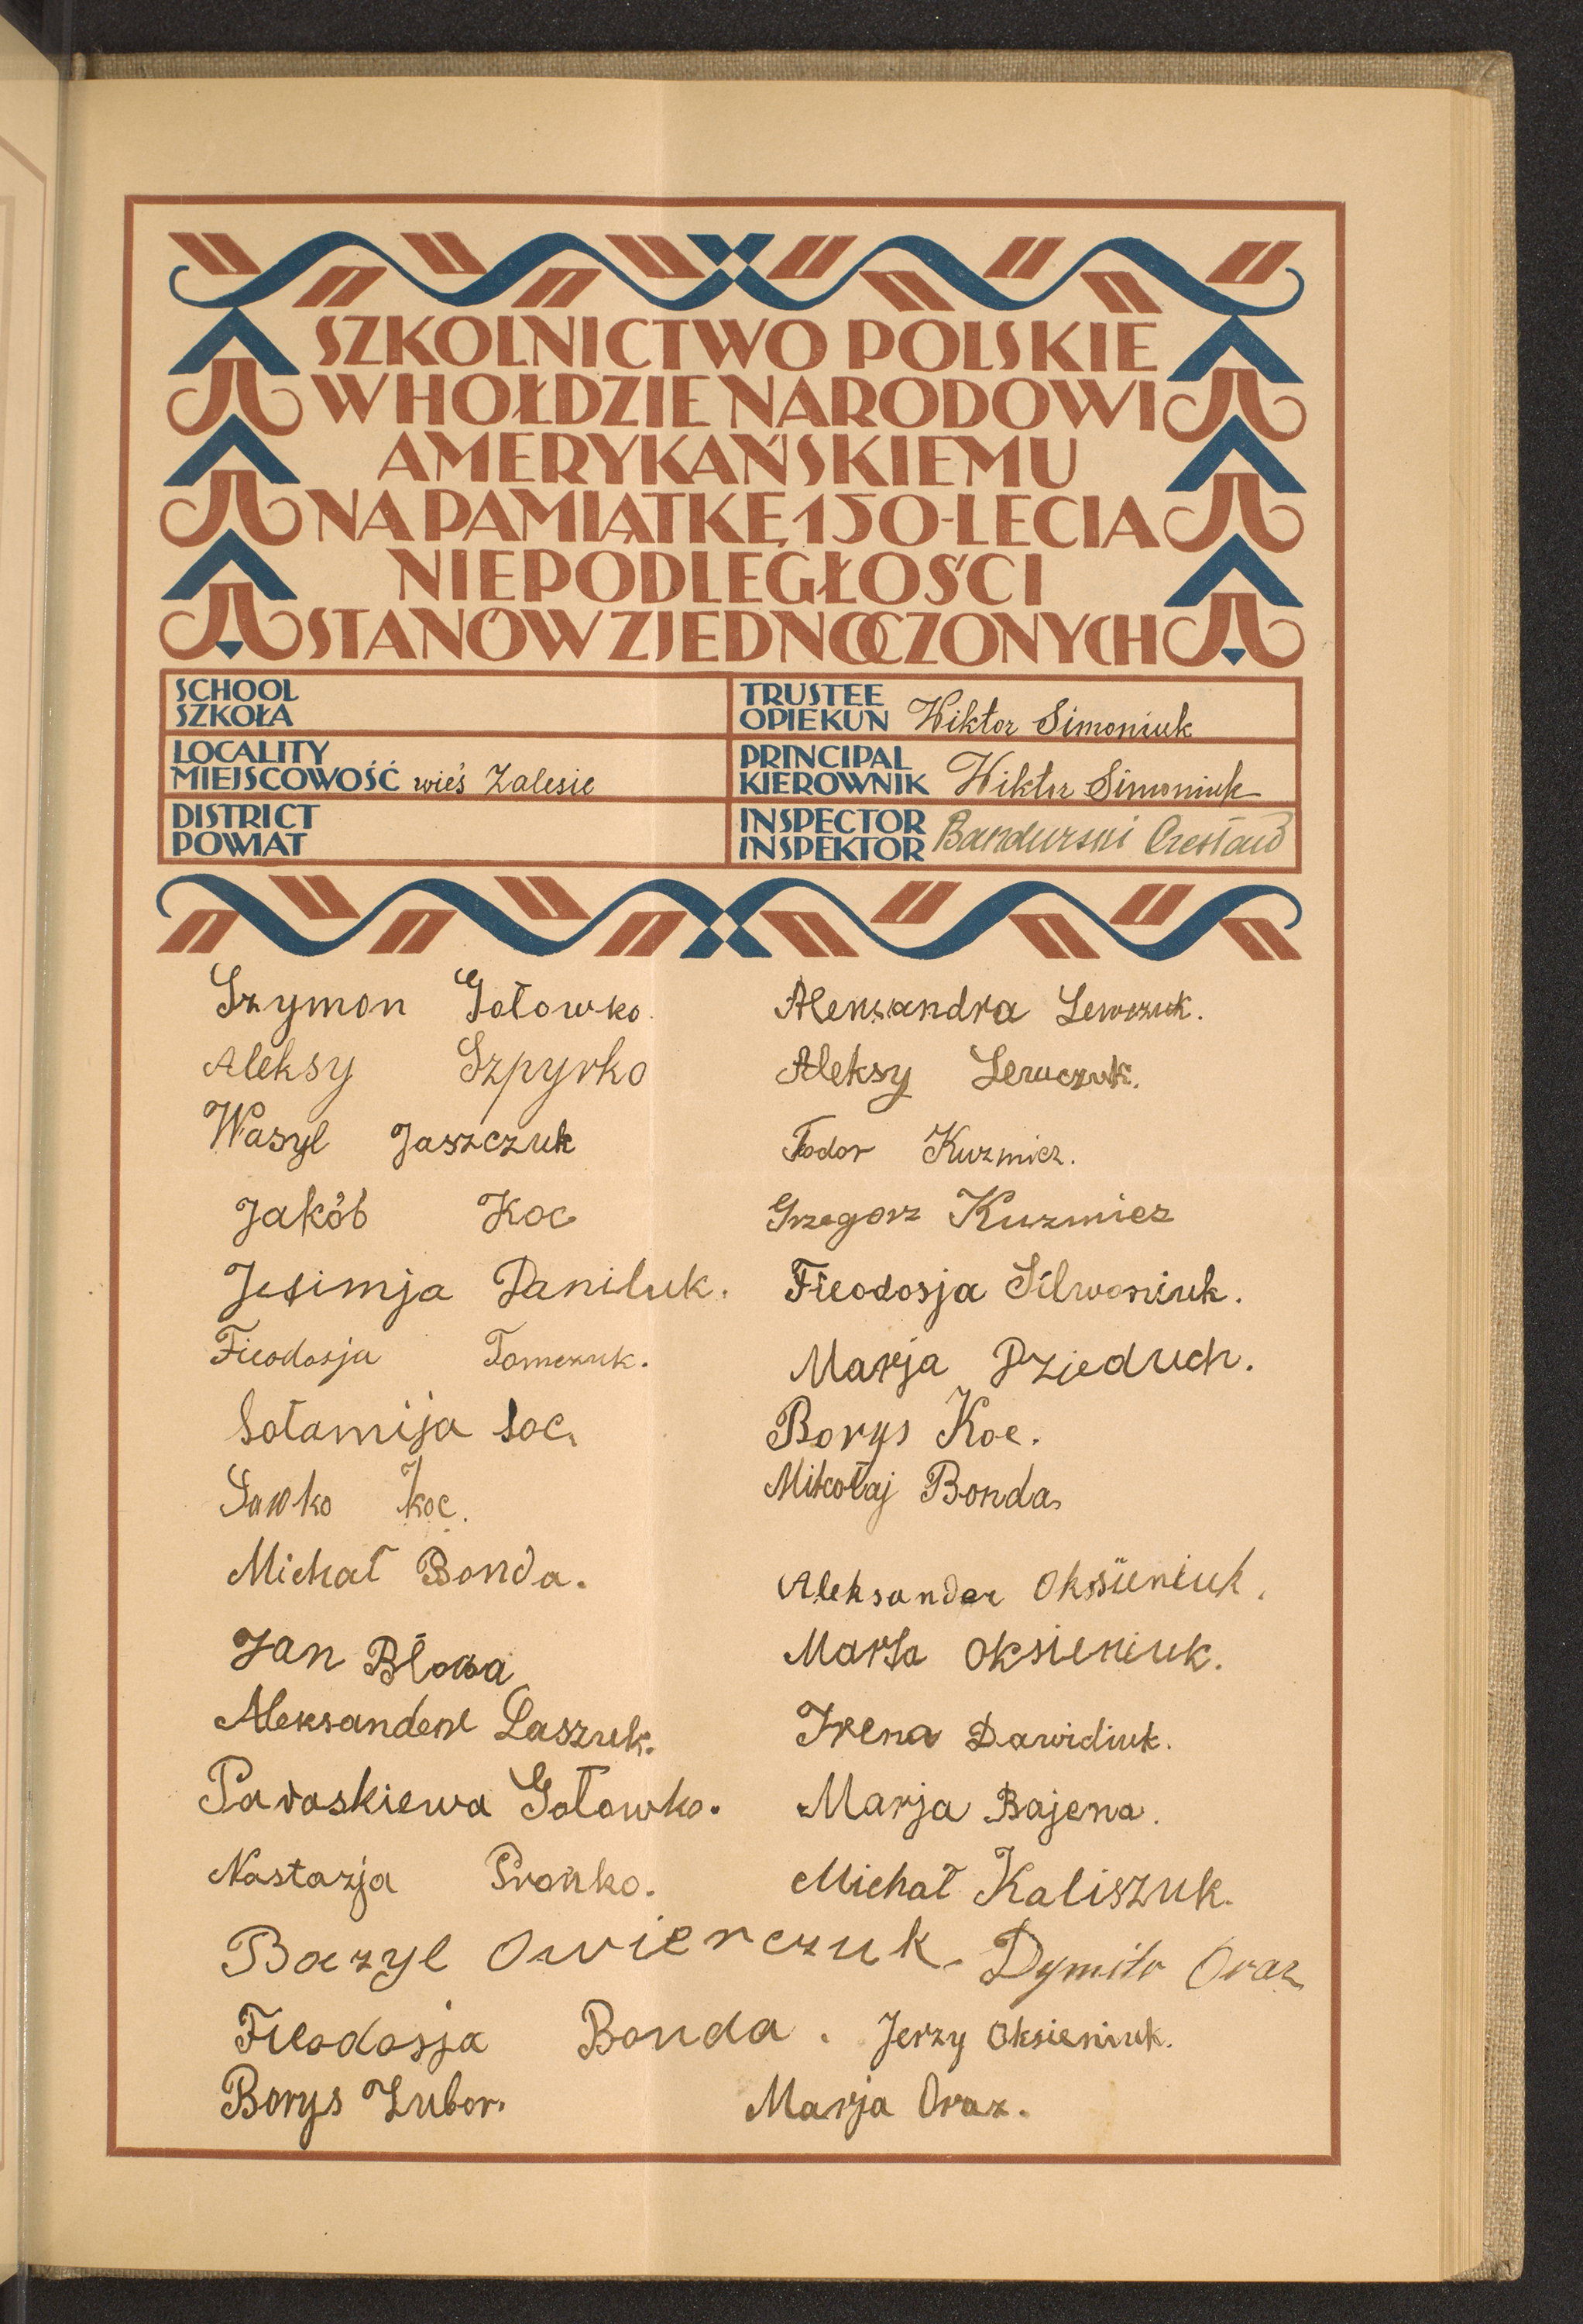 SZKOLNICTWO POLSKIE
W HOŁDZIE NARODOWI
AMERYKAŃSKIEMU
NA PAMIĄTKĘ 150-LECIA
NIEPODLEGŁOŚCI
STANÓW ZJEDNOCZONYCH
SCHOOL
SZKOŁA
TRUSTEE
OPIEKUN Wiktor Simoniuk
LOCALITY
MIEJSCOWOŚĆ wieś Zalesie
PRINCIPAL
KIEROWNIK Wiktor Simoniuk
DISTRICT
POWIAT
INSPECTOR
INSPEKTOR Bandurski Czesław
Szymon Gołowko.
Aleksy Szpyrko
Wasyl Jaszczuk
Jakób Koc
Jefimja Daniluk.
Fieodosja Tomczuk.
Sołamija
Sawko Koc.
Michał Bonda.
Jan
Aleksander Laszuk.
Paraskiewa Gołowko.
Nastazja Prońko.
Bazyl Owierczuk.
Fieodosja Bonda.
Borys Zubor.
Alenxandra Lewczuk.
Aleksy Lewczuk.
Fodor Kuzmicz.
Grzegorz Kuzmicz
Fieodosja Silwoniuk.
Marja Dzjeduch.
Borys Koc.
Mikołaj Bonda
Aleksander Oksieniuk.
Marja Oksieniuk.
Irena Dawidiuk.
Marja Bajena.
Michał Kaliszuk.
Dymitr Oraz
Jerzy Oksieniuk.
Marja Oraz.